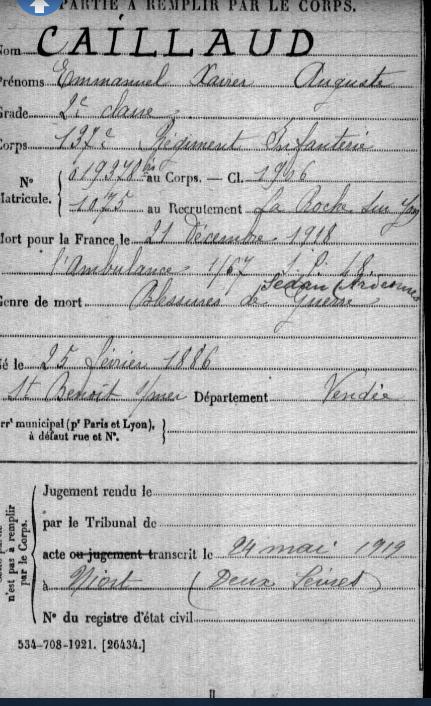 PARTIE A REMPLIR PAR LE CORPS.
Nom CAILLAUD
Prénoms Emmanuel Xavier Auguste
Grade 2e classe
Corps 137e Régiment Infanterie
No Matricule. { 019378 bis au Corps. — Cl. 1906
1075 au Recrutement La Roche sur Yon
Mort pour la France le 21 Décembre 1918
l'Ambulance 1/67 S.P. 48
Sedan (Ardennes
Genre de mort Blessures de Guerre
Né le 25 février 1886
St Benoît s/mer Département Vendée
Arrt municipal (pr Paris et Lyon), à défaut rue et No. }
Cette partie n'est pas à remplir par le Corps.
Jugement rendu le
par le Tribunal de
acte ou jugement transcrit le 24 mai 1919
à Niort (Deux Sèvres)
No du registre d'état civil
534-708-1921. [26434.]